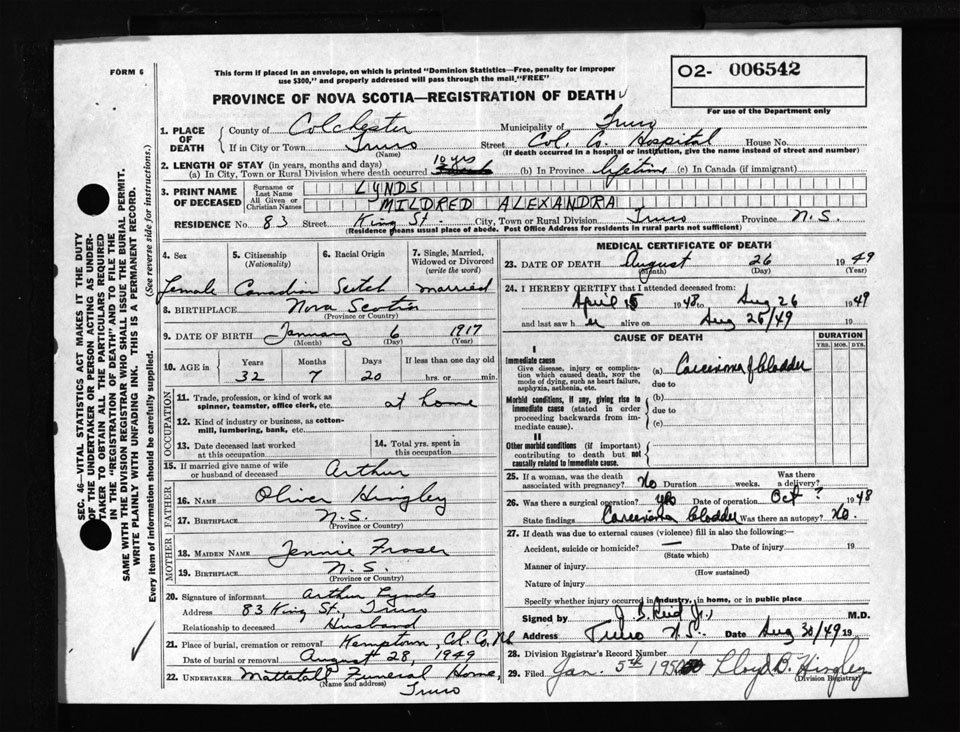 FORM 6
This form if placed in an envelope, on which is printed "Dominion Statistics—Free, penalty for improper
use $300," and properly addressed will pass through the mail "FREE"
O2- 006542
For use of the Department only
PROVINCE OF NOVA SCOTIA—REGISTRATION OF DEATH
1. PLACE OF DEATH
County of Colchester Municipality of Truro
If in City or Town Truro Street Col. Co. Hospital House No.
(Name) (If death occurred in a hospital or institution, give the name instead of street and number)
2. LENGTH OF STAY (in years, months and days)
(a) In City, Town or Rural Division where death occurred 10 yrs (b) In Province lifetime (c) In Canada (if immigrant)
3. PRINT NAME OF DECEASED
Surname or Last Name LYNDS
All Given or Christian Names MILDRED ALEXANDRA
RESIDENCE No. 83 Street King St. City, Town or Rural Division Truro Province N.S.
(Residence means usual place of abode. Post Office Address for residents in rural parts not sufficient)
4. Sex 5. Citizenship (Nationality) 6. Racial Origin 7. Single, Married, Widowed or Divorced (write the word)
Female Canadian Scotch married
8. BIRTHPLACE Nova Scotia
(Province or Country)
9. DATE OF BIRTH January 6 1917
(Month) (Day) (Year)
10. AGE in Years Months Days If less than one day old
32 7 20 hrs. or min.
OCCUPATION
11. Trade, profession, or kind of work as
spinner, teamster, office clerk, etc. at home
12. Kind of industry or business, as cotton-
mill, lumbering, bank, etc.
13. Date deceased last worked
at this occupation
14. Total yrs. spent in
this occupation
15. If married give name of wife
or husband of deceased Arthur
FATHER
16. NAME Oliver Hingley
17. BIRTHPLACE N.S.
(Province or Country)
MOTHER
18. MAIDEN NAME Jennie Fraser
19. BIRTHPLACE N.S.
(Province or Country)
20. Signature of informant Arthur Lynds
Address 83 King St. Truro
Relationship to deceased Husband
21. Place of burial, cremation or removal Kemptown, Col. Co. NS
Date of burial or removal August 28, 1949
22. UNDERTAKER Mattatall Funeral Home,
(Name and address) Truro
MEDICAL CERTIFICATE OF DEATH
23. DATE OF DEATH August 26 1949
(Month) (Day) (Year)
24. I HEREBY CERTIFY that I attended deceased from:
April 1948 to Aug 26 1949
and last saw her alive on Aug 25/49 19
CAUSE OF DEATH
DURATION
YRS. MOS. DYS.
I
Immediate cause
Give disease, injury or complica-
tion which caused death, NOT the
mode of dying, such as heart failure,
asphyxia, asthenia, etc.
(a) Carcinoma of bladder
due to
Morbid conditions, if any, giving rise to
immediate cause (stated in order
proceeding backwards from im-
mediate cause).
(b)
due to
(c)
II
Other morbid conditions (if important)
contributing to death but not
causally related to immediate cause.
25. If a woman, was the death
associated with pregnancy? No Duration weeks. Was there
a delivery?
26. Was there a surgical operation? yes Date of operation Oct ? 1948
State findings Carcinoma bladder Was there an autopsy? No.
27. If death was due to external causes (violence) fill in also the following:—
Accident, suicide or homicide? — Date of injury 19
(State which)
Manner of injury
(How sustained)
Nature of injury
Specify whether injury occurred in industry, in home, or in public place
Signed by J. S. Reid Jr. M.D.
Address Truro N.S. Date Aug 30/49 19
28. Division Registrar's Record Number
29. Filed Jan. 5th 1950 Lloyd B. Hingley
(Division Registrar)
SEC. 46—VITAL STATISTICS ACT MAKES IT THE DUTY
OF THE UNDERTAKER OR PERSON ACTING AS UNDER-
TAKER TO OBTAIN ALL THE PARTICULARS REQUIRED
IN THE "REGISTRATION OF DEATH" AND TO FILE THE
SAME WITH THE DIVISION REGISTRAR WHO SHALL ISSUE THE BURIAL PERMIT.
WRITE PLAINLY WITH UNFADING INK. THIS IS A PERMANENT RECORD.
Every item of information should be carefully supplied. (See reverse side for instructions.)